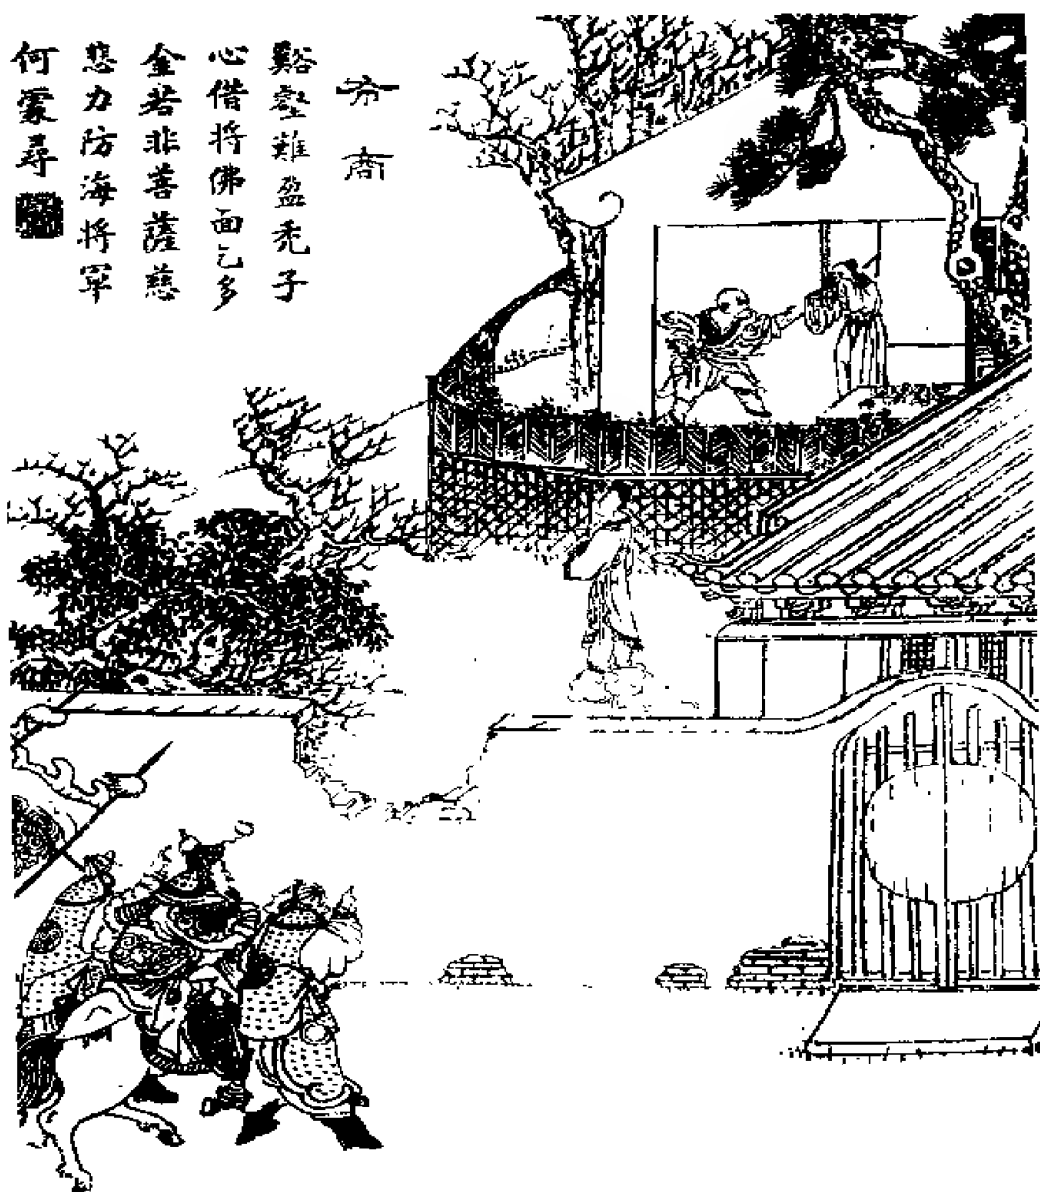 布商
谿壑難盈禿子
心借將佛面乞多
金若非菩薩慈
悲力防海將軍
何處尋